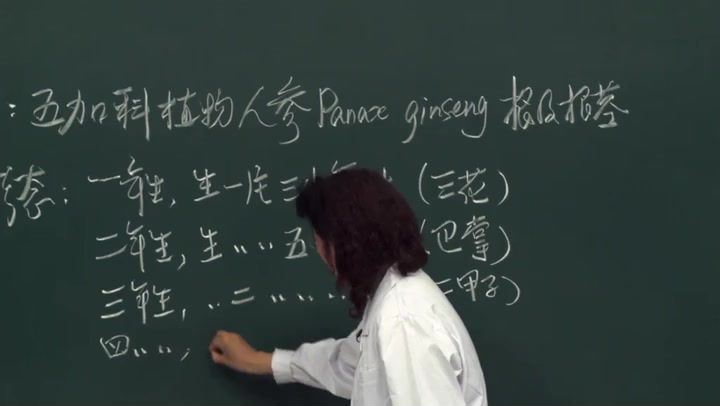 : 五加科植物人参 Panax ginseng 根及根茎
态: 一年生, 生一片三 (三花)
二年生, 生 〃 〃 五 (巴掌)
三年生, 〃 二 〃 〃 〃 二甲子)
四 〃 〃,